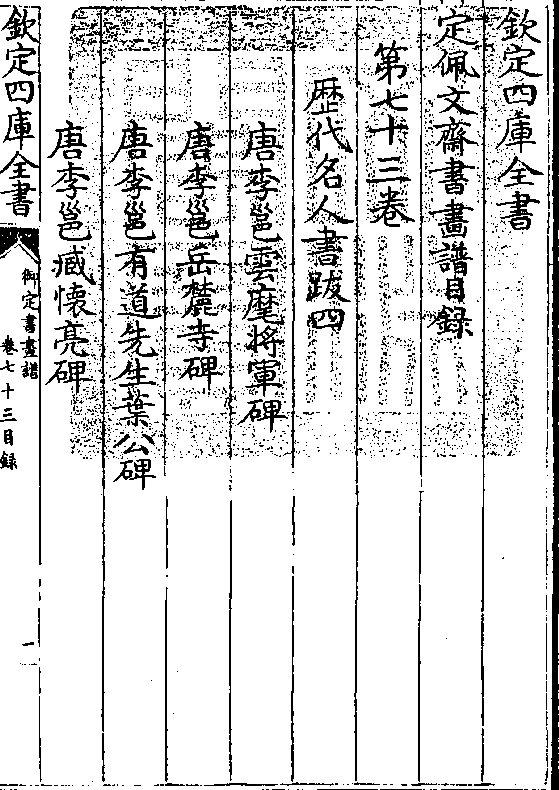 欽定四庫全書
定佩文齋書畫譜目録
第七十三卷
歴代名人書跋四
唐李邕雲麾將軍碑
唐李邕岳麓寺碑
唐李邕有道先生葉公碑
唐李邕臧懐亮碑
欽定四庫全書
御定書畫譜
卷七十三目録
一